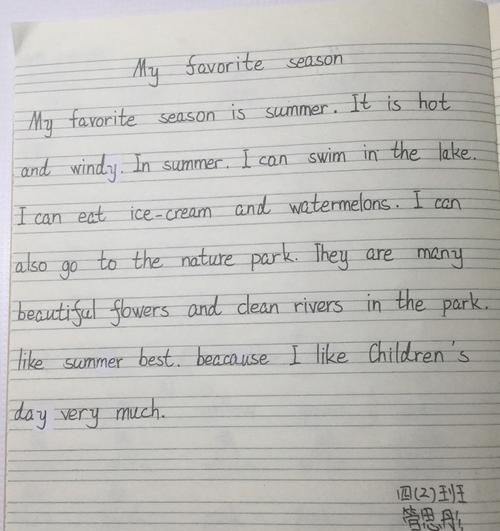 My favorite season
My favorite season is summer. It is hot
and windy. In summer. I can swim in the lake.
I can eat ice-cream and watermelons. I can
also go to the nature park. They are many
beautiful flowers and clean rivers in the park.
like summer best. beacause I like Children's
day very much.
四(2)班
管思彤